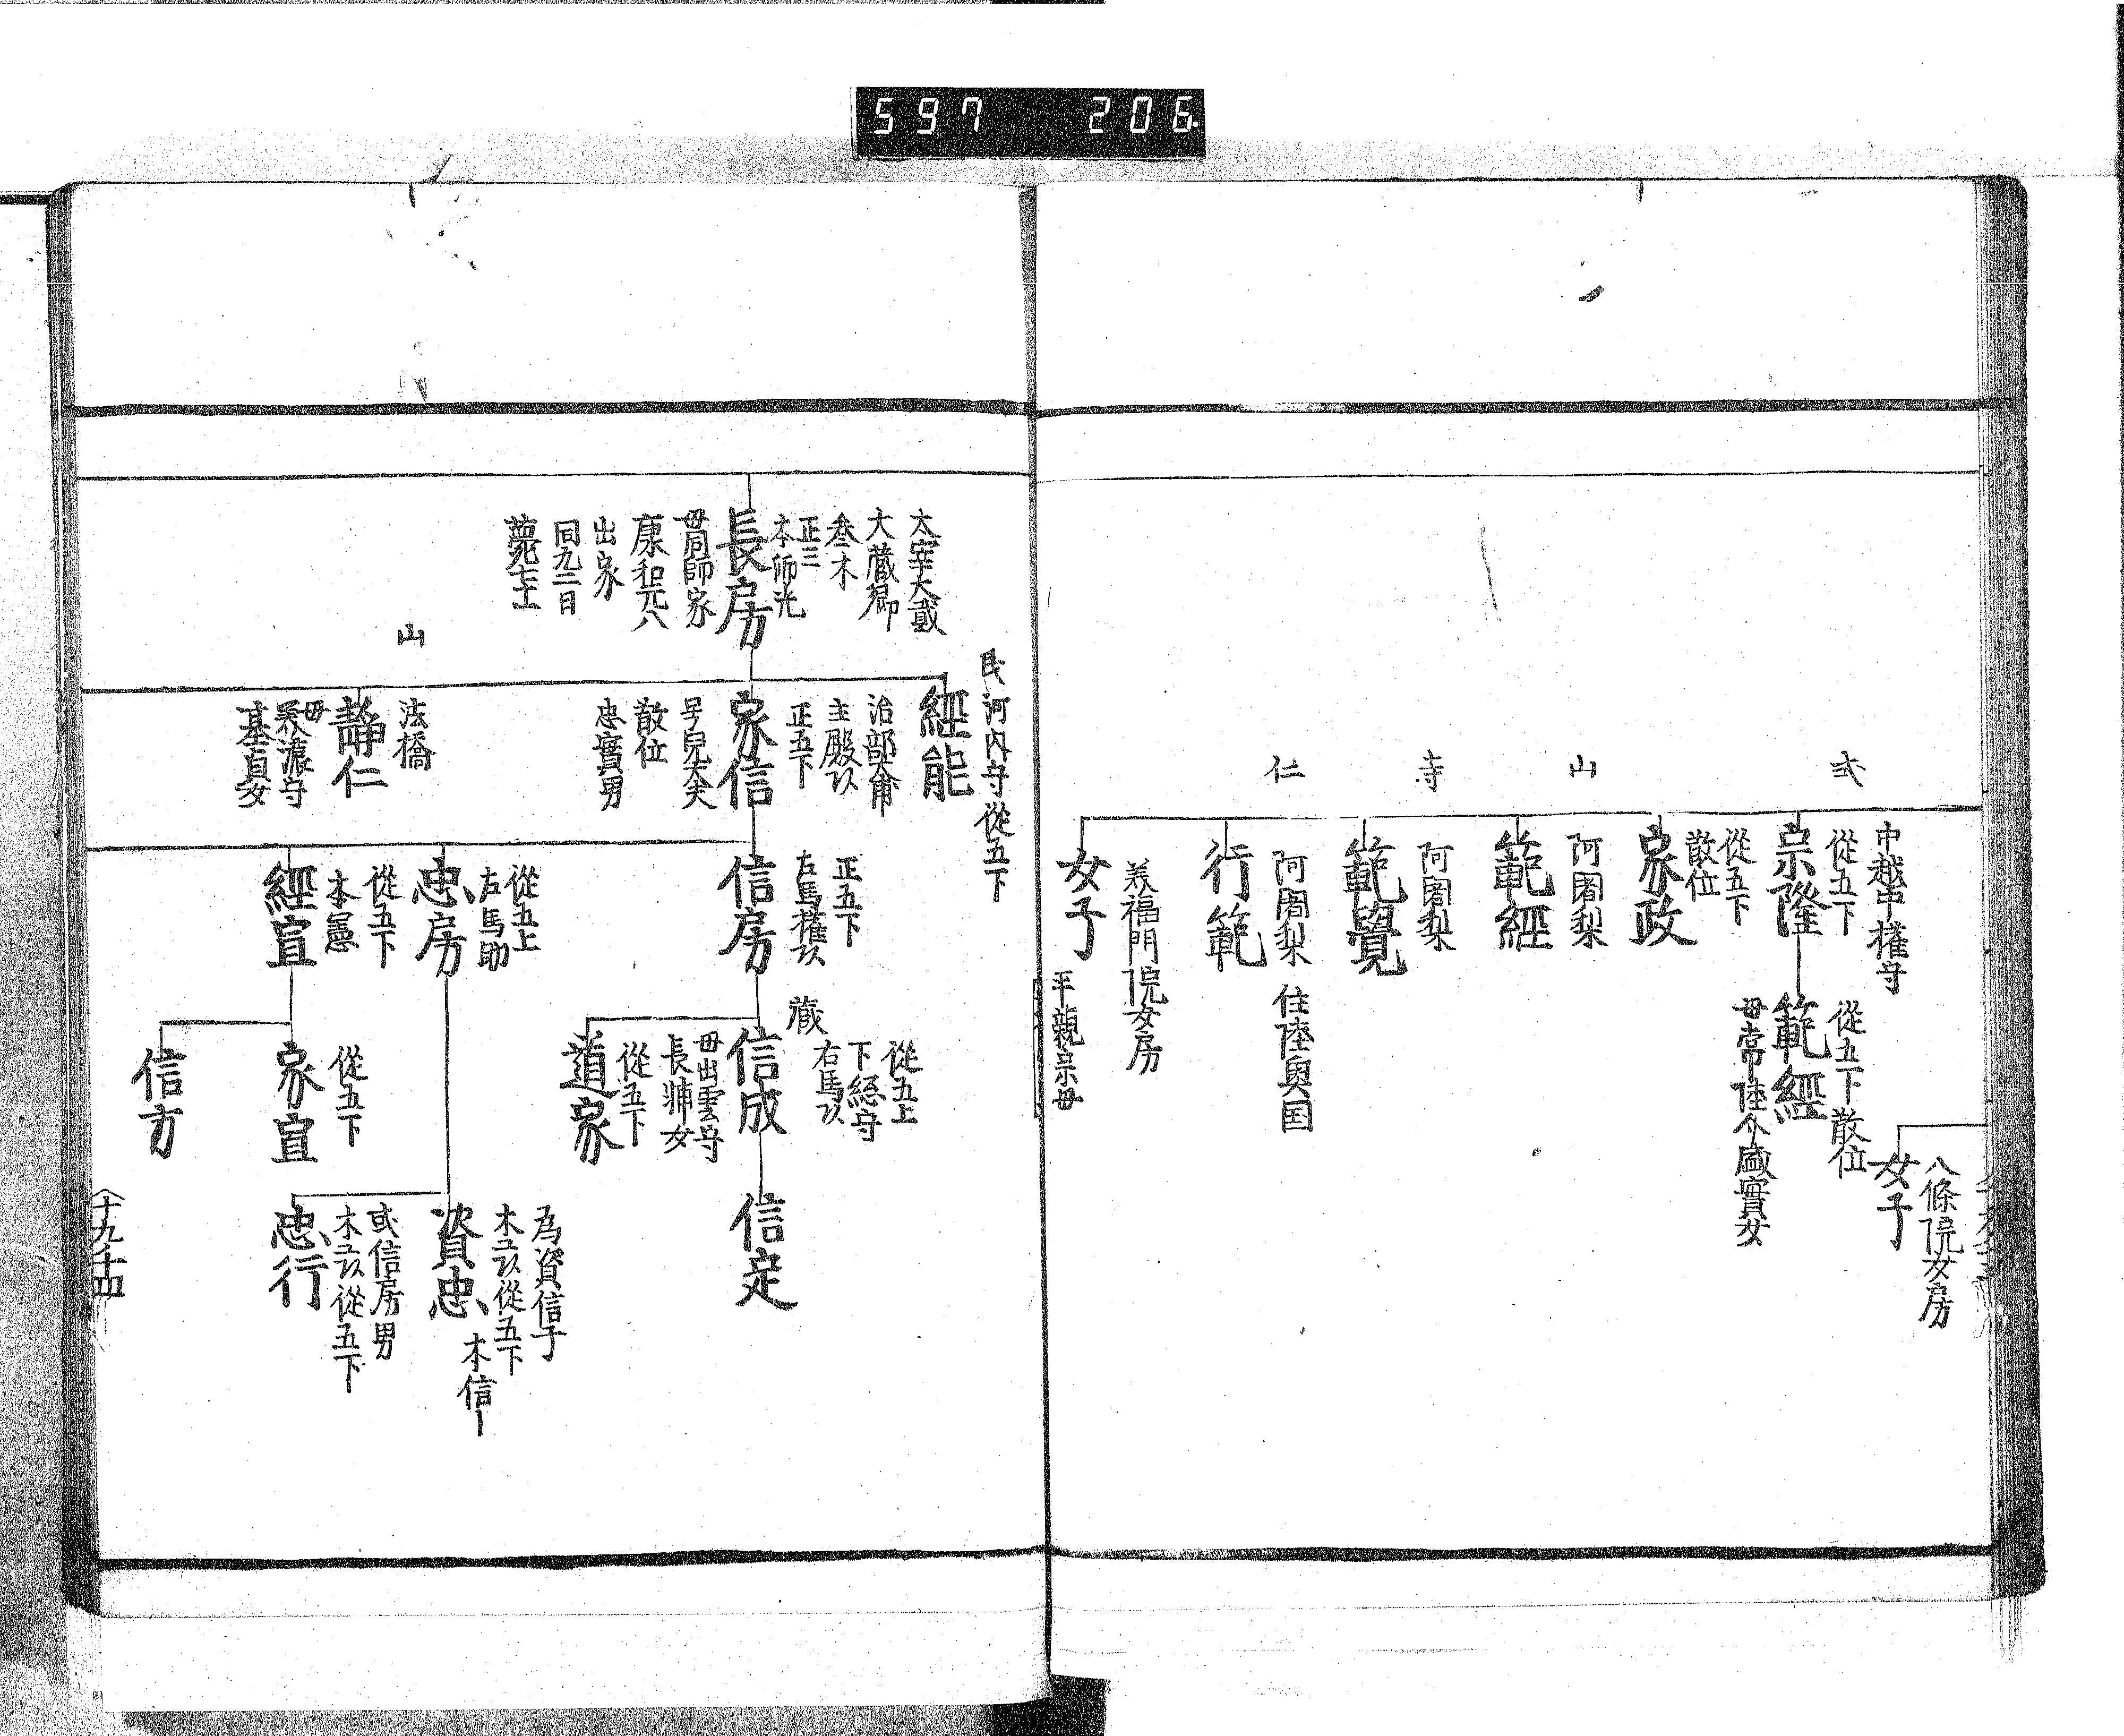 597 206
八條院女房
女子
弐
中越中權守
從五下
宗隆
從五下散位
範經
母常陸介盛實女
從五下
散位
家政
山
阿闍梨
範經
寺
阿闍梨
範覺
仁
阿闍梨 住陸奥国
行範
美福門院女房
女子
平親宗母
太宰大貳
大蔵卿
叅木
正三
本師光
長房
母同師家
康和元八
出家
同九二日
薨七十
民 河内守從五下
經能
治部大甫
主殿以
正五下
家信
号兒大夫
散位
忠實男
山
法橋
靜仁
母
美濃守
基貞女
正五下
左馬權以
信房
蔵
從五上
下総守
右馬以
信成
母出雲守
長輔女
信定
從五下
道家
從五上
右馬助
忠房
為資信子
木工以從五下
資忠
本信
或信房男
木工以從五下
忠行
從五下
本憲
經宣
從五下
家宣
信方
十九ノ十四